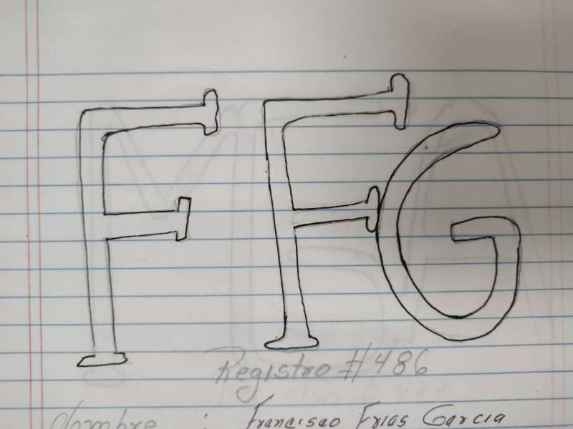 FFG
Registro #486
Nombre : Francisco Frias Garcia